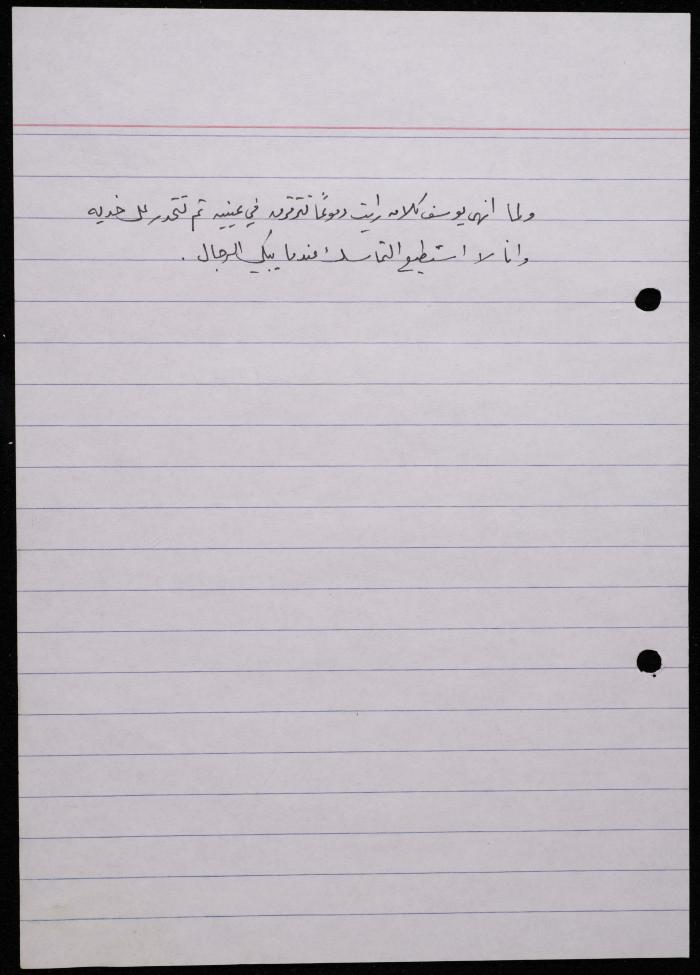 ولما انهى يوسف كلامه رايت دموعًا تترقرق في عينيه ثم تتحدر على خديه
وانا لا استطيع التماسك عندما يبكي الرجال .